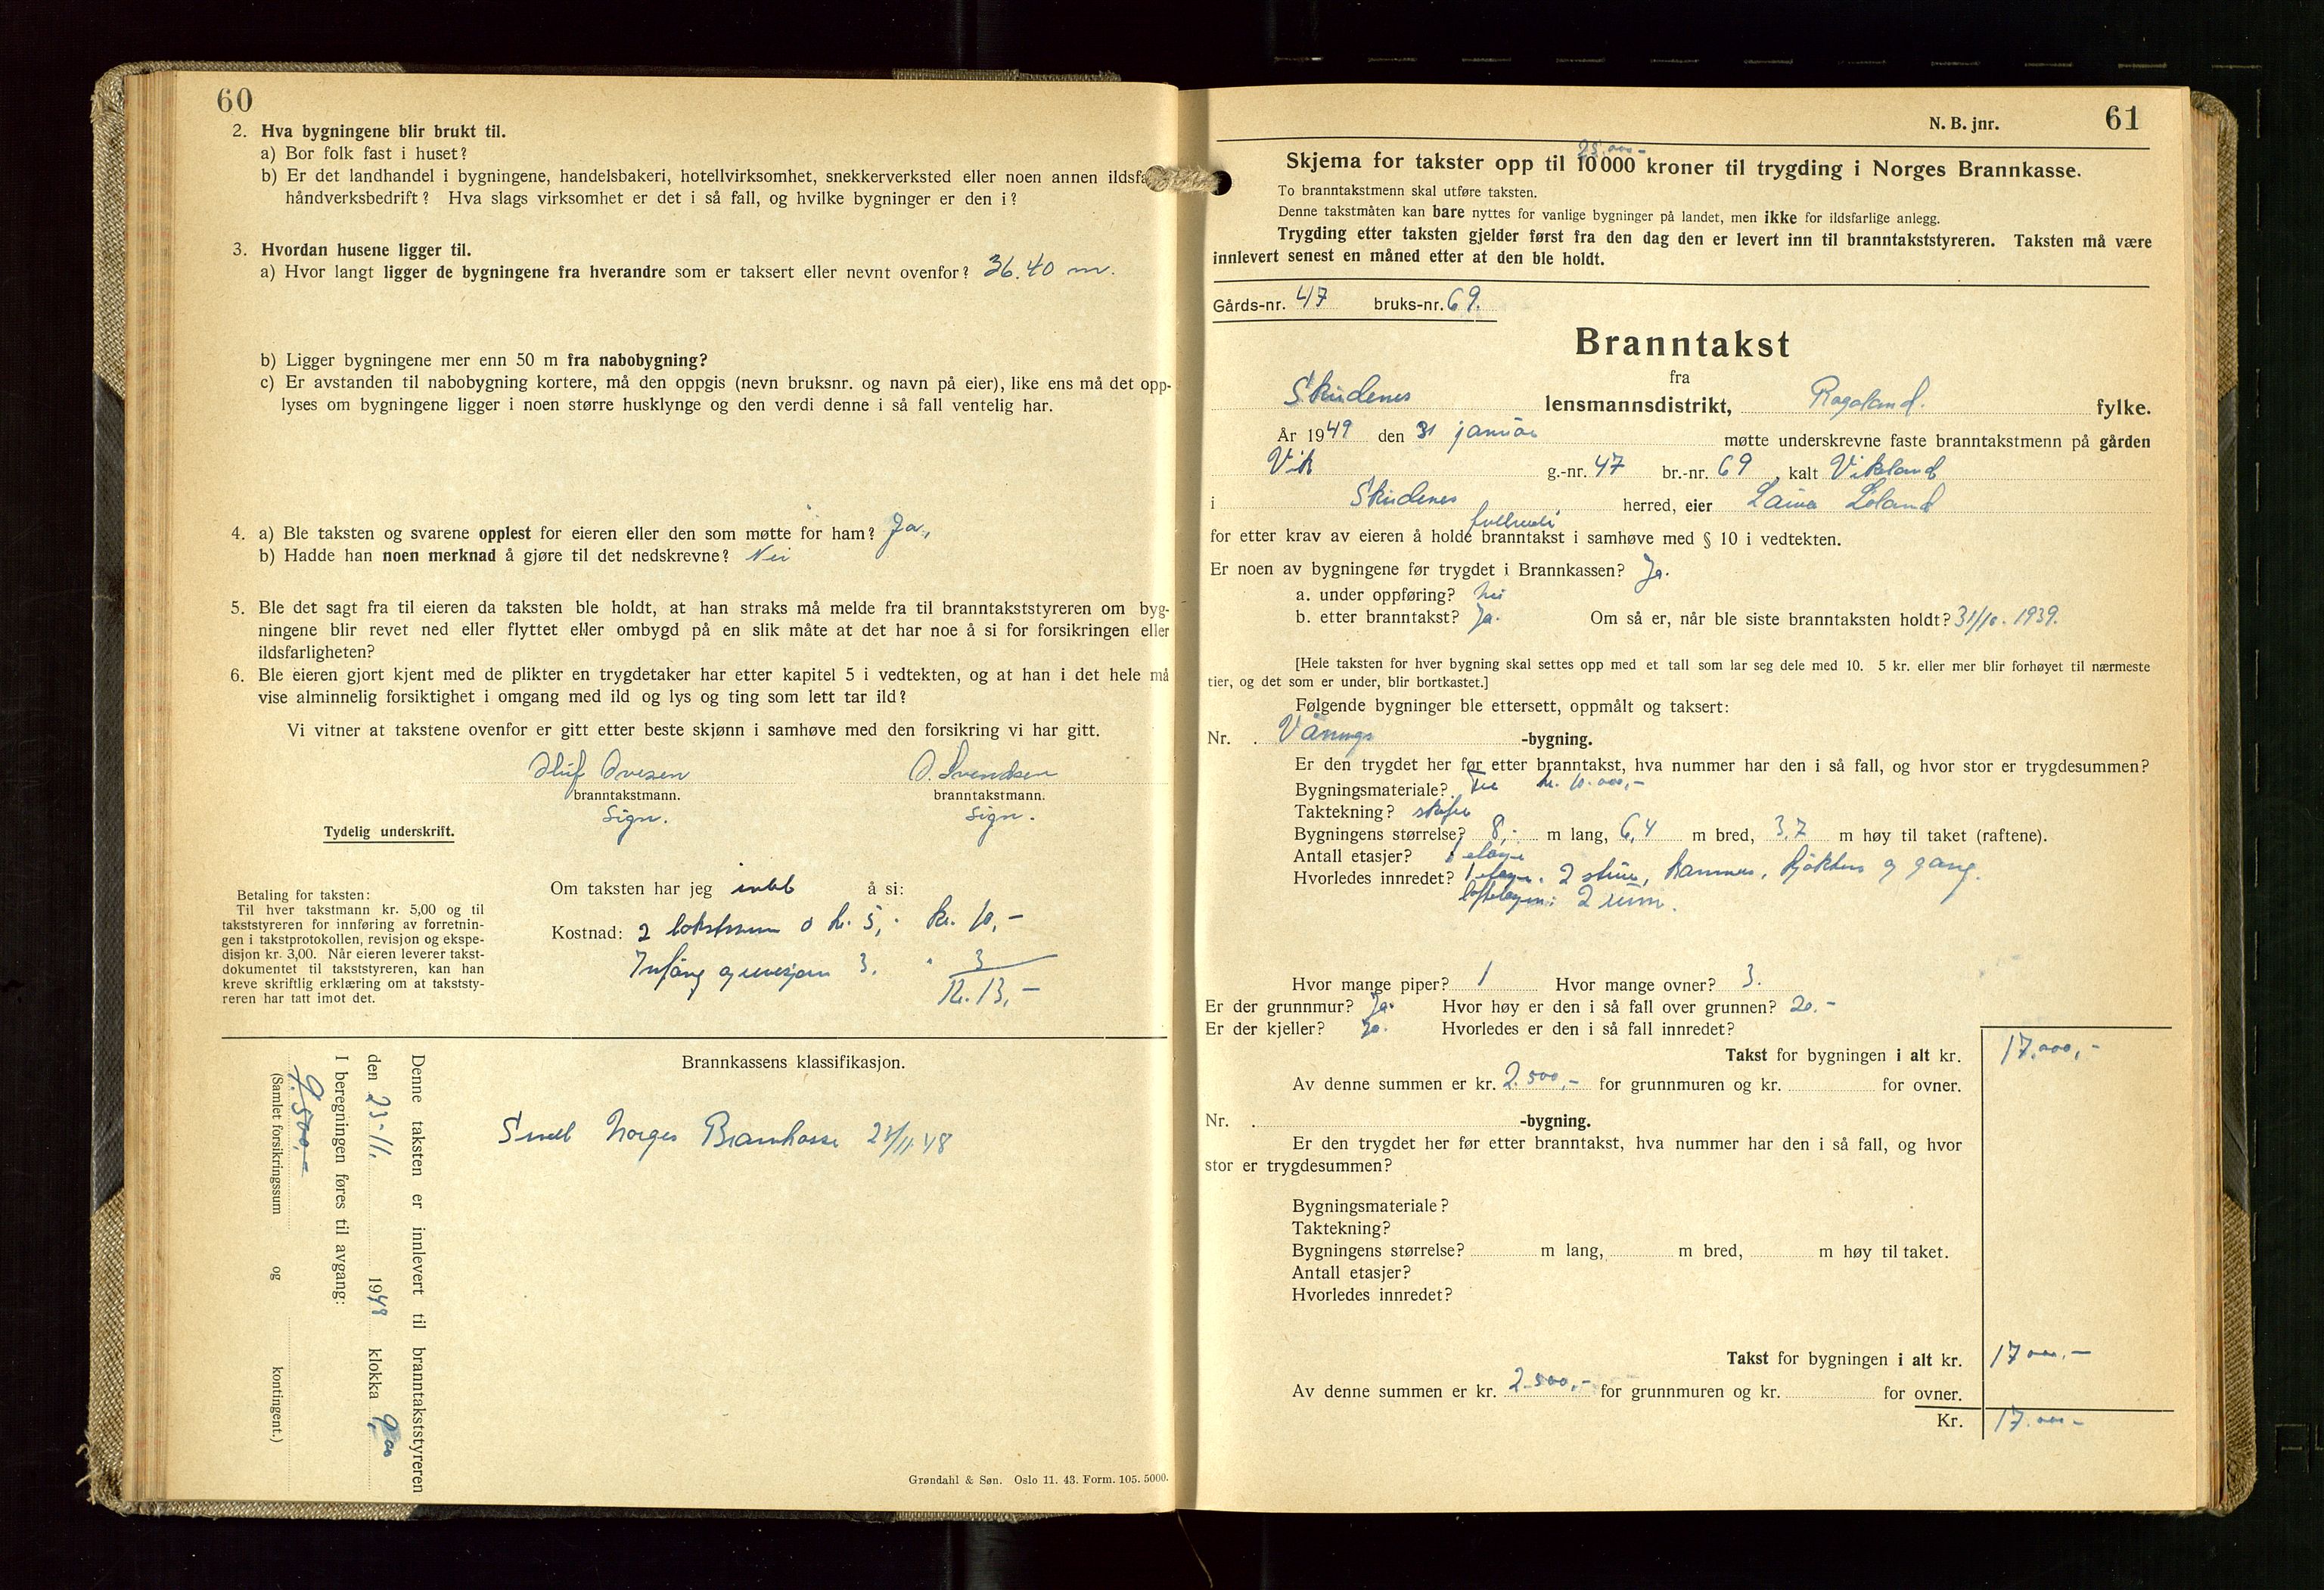 60
2. Hva bygningene blir brukt til.
a) Bor folk fast i huset?
b) Er det landhandel i bygningene, handelsbakeri, hotellvirksomhet, snekkerverksted eller noen annen
håndverksbedrift? Hva slags virksomhet er det i så fall, og hvilke bygninger er den i?
3. Hvordan husene ligger til.
a) Hvor langt ligger de bygningene fra hverandre som er taksert eller nevnt ovenfor? 36.40 m.
b) Ligger bygningene mer enn 50 m fra nabobygning?
c) Er avstanden til nabobygning kortere, må den oppgis (nevn bruksnr. og navn på eier), like ens må det opp-
lyses om bygningene ligger i noen større husklynge og den verdi denne i så fall ventelig har.
4. a) Ble taksten og svarene opplest for eieren eller den som møtte for ham? Ja,
b) Hadde han noen merknad å gjøre til det nedskrevne? Nei
5. Ble det sagt fra til eieren da taksten ble holdt, at han straks må melde fra til branntakststyreren om byg-
ningene blir revet ned eller flyttet eller ombygd på en slik måte at det har noe å si for forsikringen eller
ildsfarligheten?
6. Ble eieren gjort kjent med de plikter en trygdetaker har etter kapitel 5 i vedtekten, og at han i det hele må
vise alminnelig forsiktighet i omgang med ild og lys og ting som lett tar ild?
Vi vitner at takstene ovenfor er gitt etter beste skjønn i samhøve med den forsikring vi har gitt.
Oluf Ovesen O. Svendsen
branntakstmann. branntakstmann.
Sign. Sign.
Tydelig underskrift.
Betaling for taksten:
Til hver takstmann kr. 5,00 og til
takststyreren for innføring av forretnin-
gen i takstprotokollen, revisjon og ekspe-
disjon kr. 3,00. Når eieren leverer takst-
dokumentet til takststyreren, kan han
kreve skriftlig erklæring om at takststy-
reren har tatt imot det.
Om taksten har jeg intet å si:
Kostnad: 2 takstmenn à kr. 5,- kr. 10,-
Innføring og revisjon 3. " 3
Kr. 13,-
Brannkassens klassifikasjon.
Sendt Norges Brannkasse 23/11 48
Denne taksten er innlevert til branntakststyreren
den 23-11. 1948 klokka 9,00
I beregningen føres til avgang:
9.500,-
(Samlet forsikringssum og kontingent.)
Grøndahl & Søn. Oslo 11. 43. Form. 105. 5000.
61
N. B. jnr.
25.000-
Skjema for takster opp til 10 000 kroner til trygding i Norges Brannkasse.
To branntakstmenn skal utføre taksten.
Denne takstmåten kan bare nyttes for vanlige bygninger på landet, men ikke for ildsfarlige anlegg.
Trygding etter taksten gjelder først fra den dag den er levert inn til branntakststyreren. Taksten må være
innlevert senest en måned etter at den ble holdt.
Gårds-nr. 47 bruks-nr. 69.
Branntakst
fra
Skudenes lensmannsdistrikt, Rogaland. fylke.
År 1949 den 31 januar møtte underskrevne faste branntakstmenn på gården
Vik g.-nr. 47 br.-nr. 69, kalt Vikeland
i Skudenes herred, eier Laura Loland
fullverdi
for etter krav av eieren å holde branntakst i samhøve med § 10 i vedtekten.
Er noen av bygningene før trygdet i Brannkassen? Ja.
a. under oppføring? nei
b. etter branntakst? Ja. Om så er, når ble siste branntaksten holdt? 31/10. 1939.
[Hele taksten for hver bygning skal settes opp med et tall som lar seg dele med 10. 5 kr. eller mer blir forhøyet til nærmeste
tier, og det som er under, blir bortkastet.]
Følgende bygninger ble ettersett, oppmålt og taksert:
Nr. . Vånings -bygning.
Er den trygdet her før etter branntakst, hva nummer har den i så fall, og hvor stor er trygdesummen?
Bygningsmateriale? Tre kr. 10.000,-
Taktekning? skifer
Bygningens størrelse? 8,- m lang, 6,4 m bred, 3,7 m høy til taket (raftene).
Antall etasjer? 1 etasje
Hvorledes innredet? 1 etasje. 2 stuer, kammer, kjøkken og gang.
loftetasjen: 2 rum.
Hvor mange piper? 1 Hvor mange ovner? 3.
Er der grunnmur? Ja. Hvor høy er den i så fall over grunnen? 20.-
Er der kjeller? Ja. Hvorledes er den i så fall innredet?
Takst for bygningen i alt kr. 17.000,-
Av denne summen er kr. 2.500,- for grunnmuren og kr. for ovner.
Nr. . -bygning.
Er den trygdet her før etter branntakst, hva nummer har den i så fall, og hvor
stor er trygdesummen?
Bygningsmateriale?
Taktekning?
Bygningens størrelse? m lang, m bred, m høy til taket.
Antall etasjer?
Hvorledes innredet?
Takst for bygningen i alt kr. 17000,-
Av denne summen er kr. 2.500,- for grunnmuren og kr. for ovner.
Kr. 17.000-